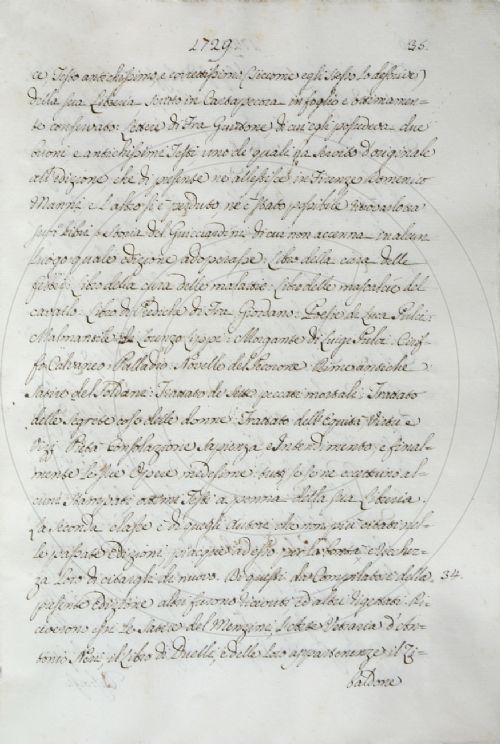 1729. 35.
ce Testo antichissimo, e correttissimo (siccome egli stesso lo descrive)
della sua Libreria scritto in Cartapecora in foglio e ottimamen-
te conservato: Lettere di Fra Guittone di cui egli possedeva due
buoni e antichissimi Testi uno de' quali ha servito d'originale
all'edizione, che di presente ne allestisce in Firenze Domenico
Manni e l'altro si è perduto, ne è stato possibile
Istoria del Guicciardini di cui non accenna in alcun
luogo quale edizione adoperasse: Libro della cura delle
febbri: Libro della cura delle malattie: Libro delle mascalcie del
cavallo: Libro di Prediche di Fra Giordano: Poesie di Luca Pulci:
Malmantile di Lorenzo Lippi: Morgante di Luigi Pulci: Ciriff-
fo Calvaneo: Palladio: Novelle del Pecorone: Rime antiche:
Satire del Soldani: Trattato de' sette peccati mortali: Trattato
delle segrete cose delle donne: Trattato dell'Equità: Virtù e
Vizj: Consolazione: Sapienza e Intendimento; e final-
mente le sue Opere medesime: tutti se se ne eccettuino al-
cuni stampati ottimi Testi a penna della sua Libreria.
La seconda classe è di quegli autori che non più citati nel-
le passate Edizioni piacque adesso per la bontà, e vaghez-
za loro di citargli di nuovo. Di questi da Compilatori della 34.
presente Edizione altri furono ricevuti ed altri rigettati. Ri-
cevono essi le Satire del Menzini, l'Arte Vetraria d'An-
tonio Neri, il Libro di Duelli, e delle loro appartenenze, il Zi-
baldone